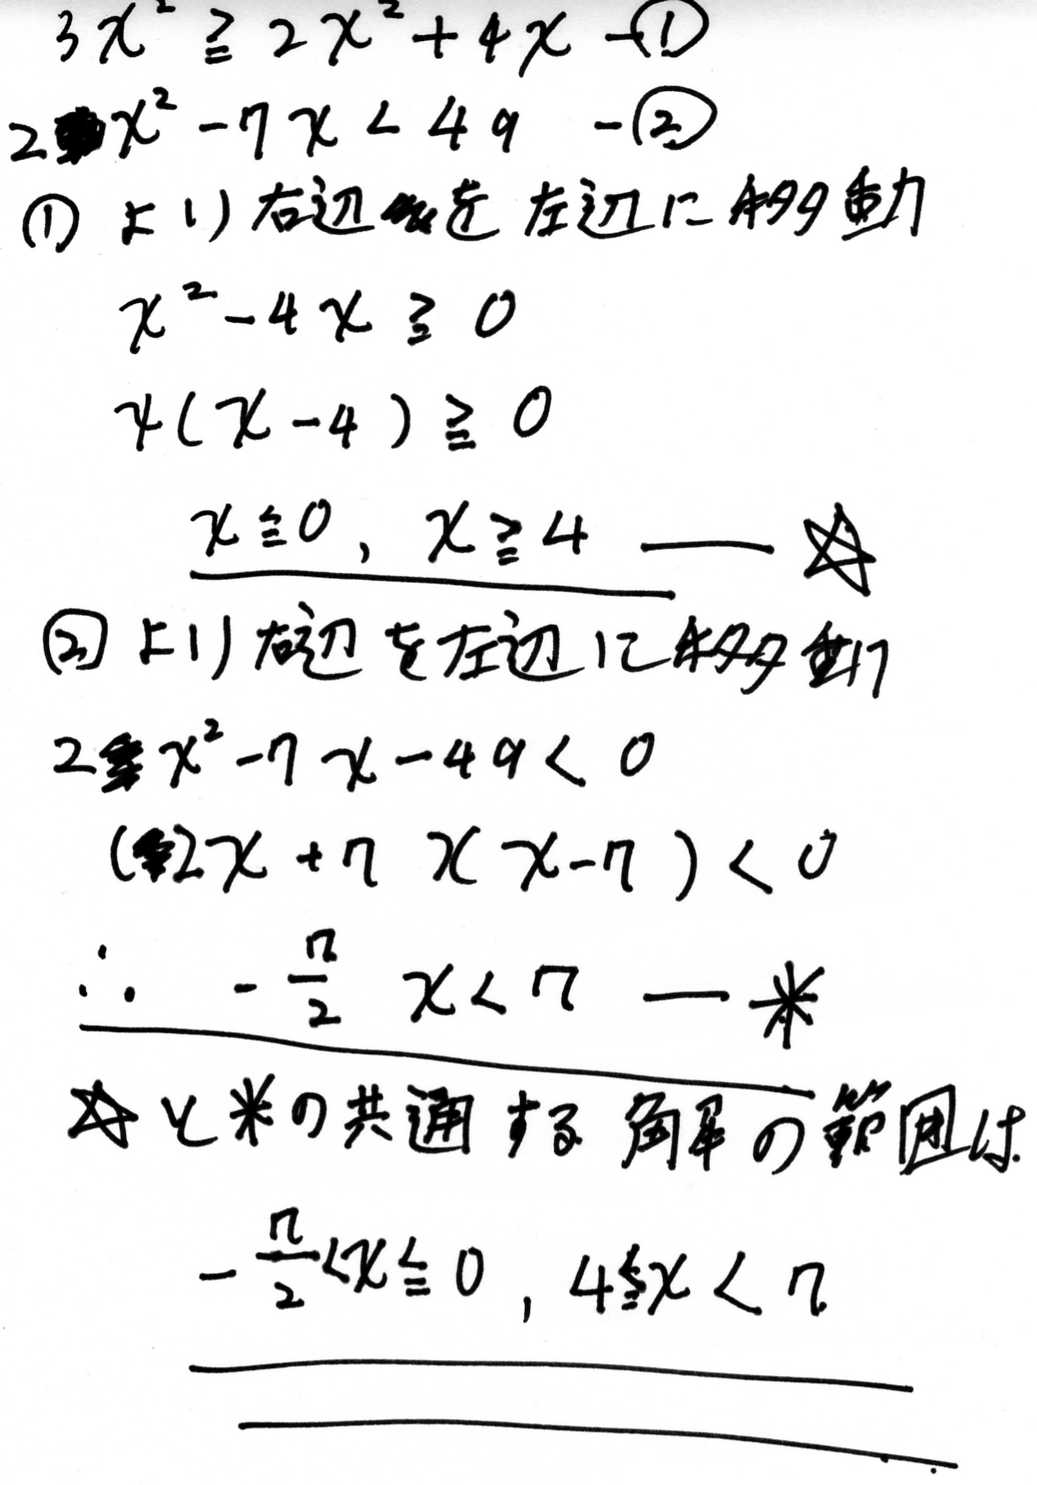 3x² ≧ 2x² + 4x -①
2x² - 7x < 49 -②
① より右辺を左辺に移動
x² - 4x ≧ 0
x(x - 4) ≧ 0
x ≦ 0, x ≧ 4 — ☆
② より右辺を左辺に移動
2x² - 7x - 49 < 0
(2x + 7)(x - 7) < 0
∴ -7/2 x < 7 — ✳
☆と✳の共通する解の範囲は
-7/2 < x ≦ 0, 4 ≦ x < 7